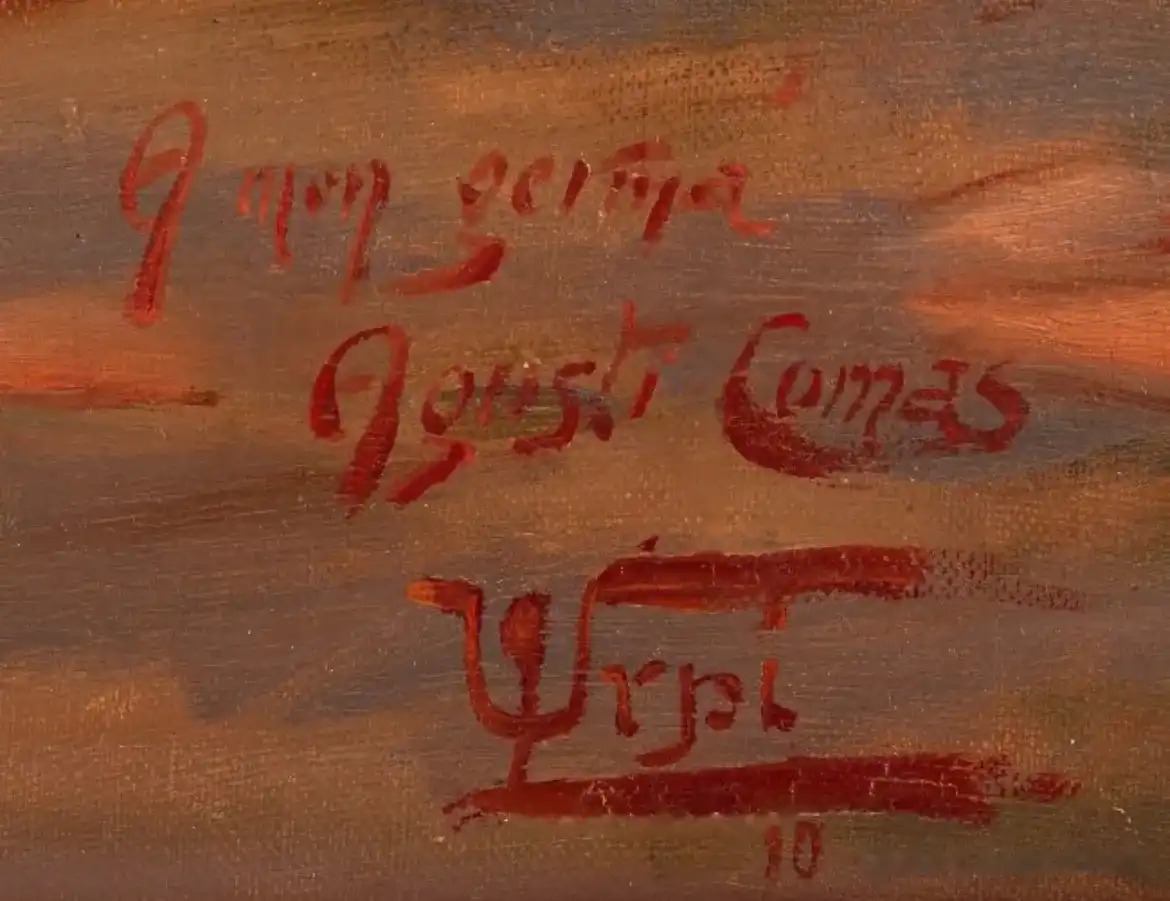 A mon germá
Agustí Comas
Urpi
10